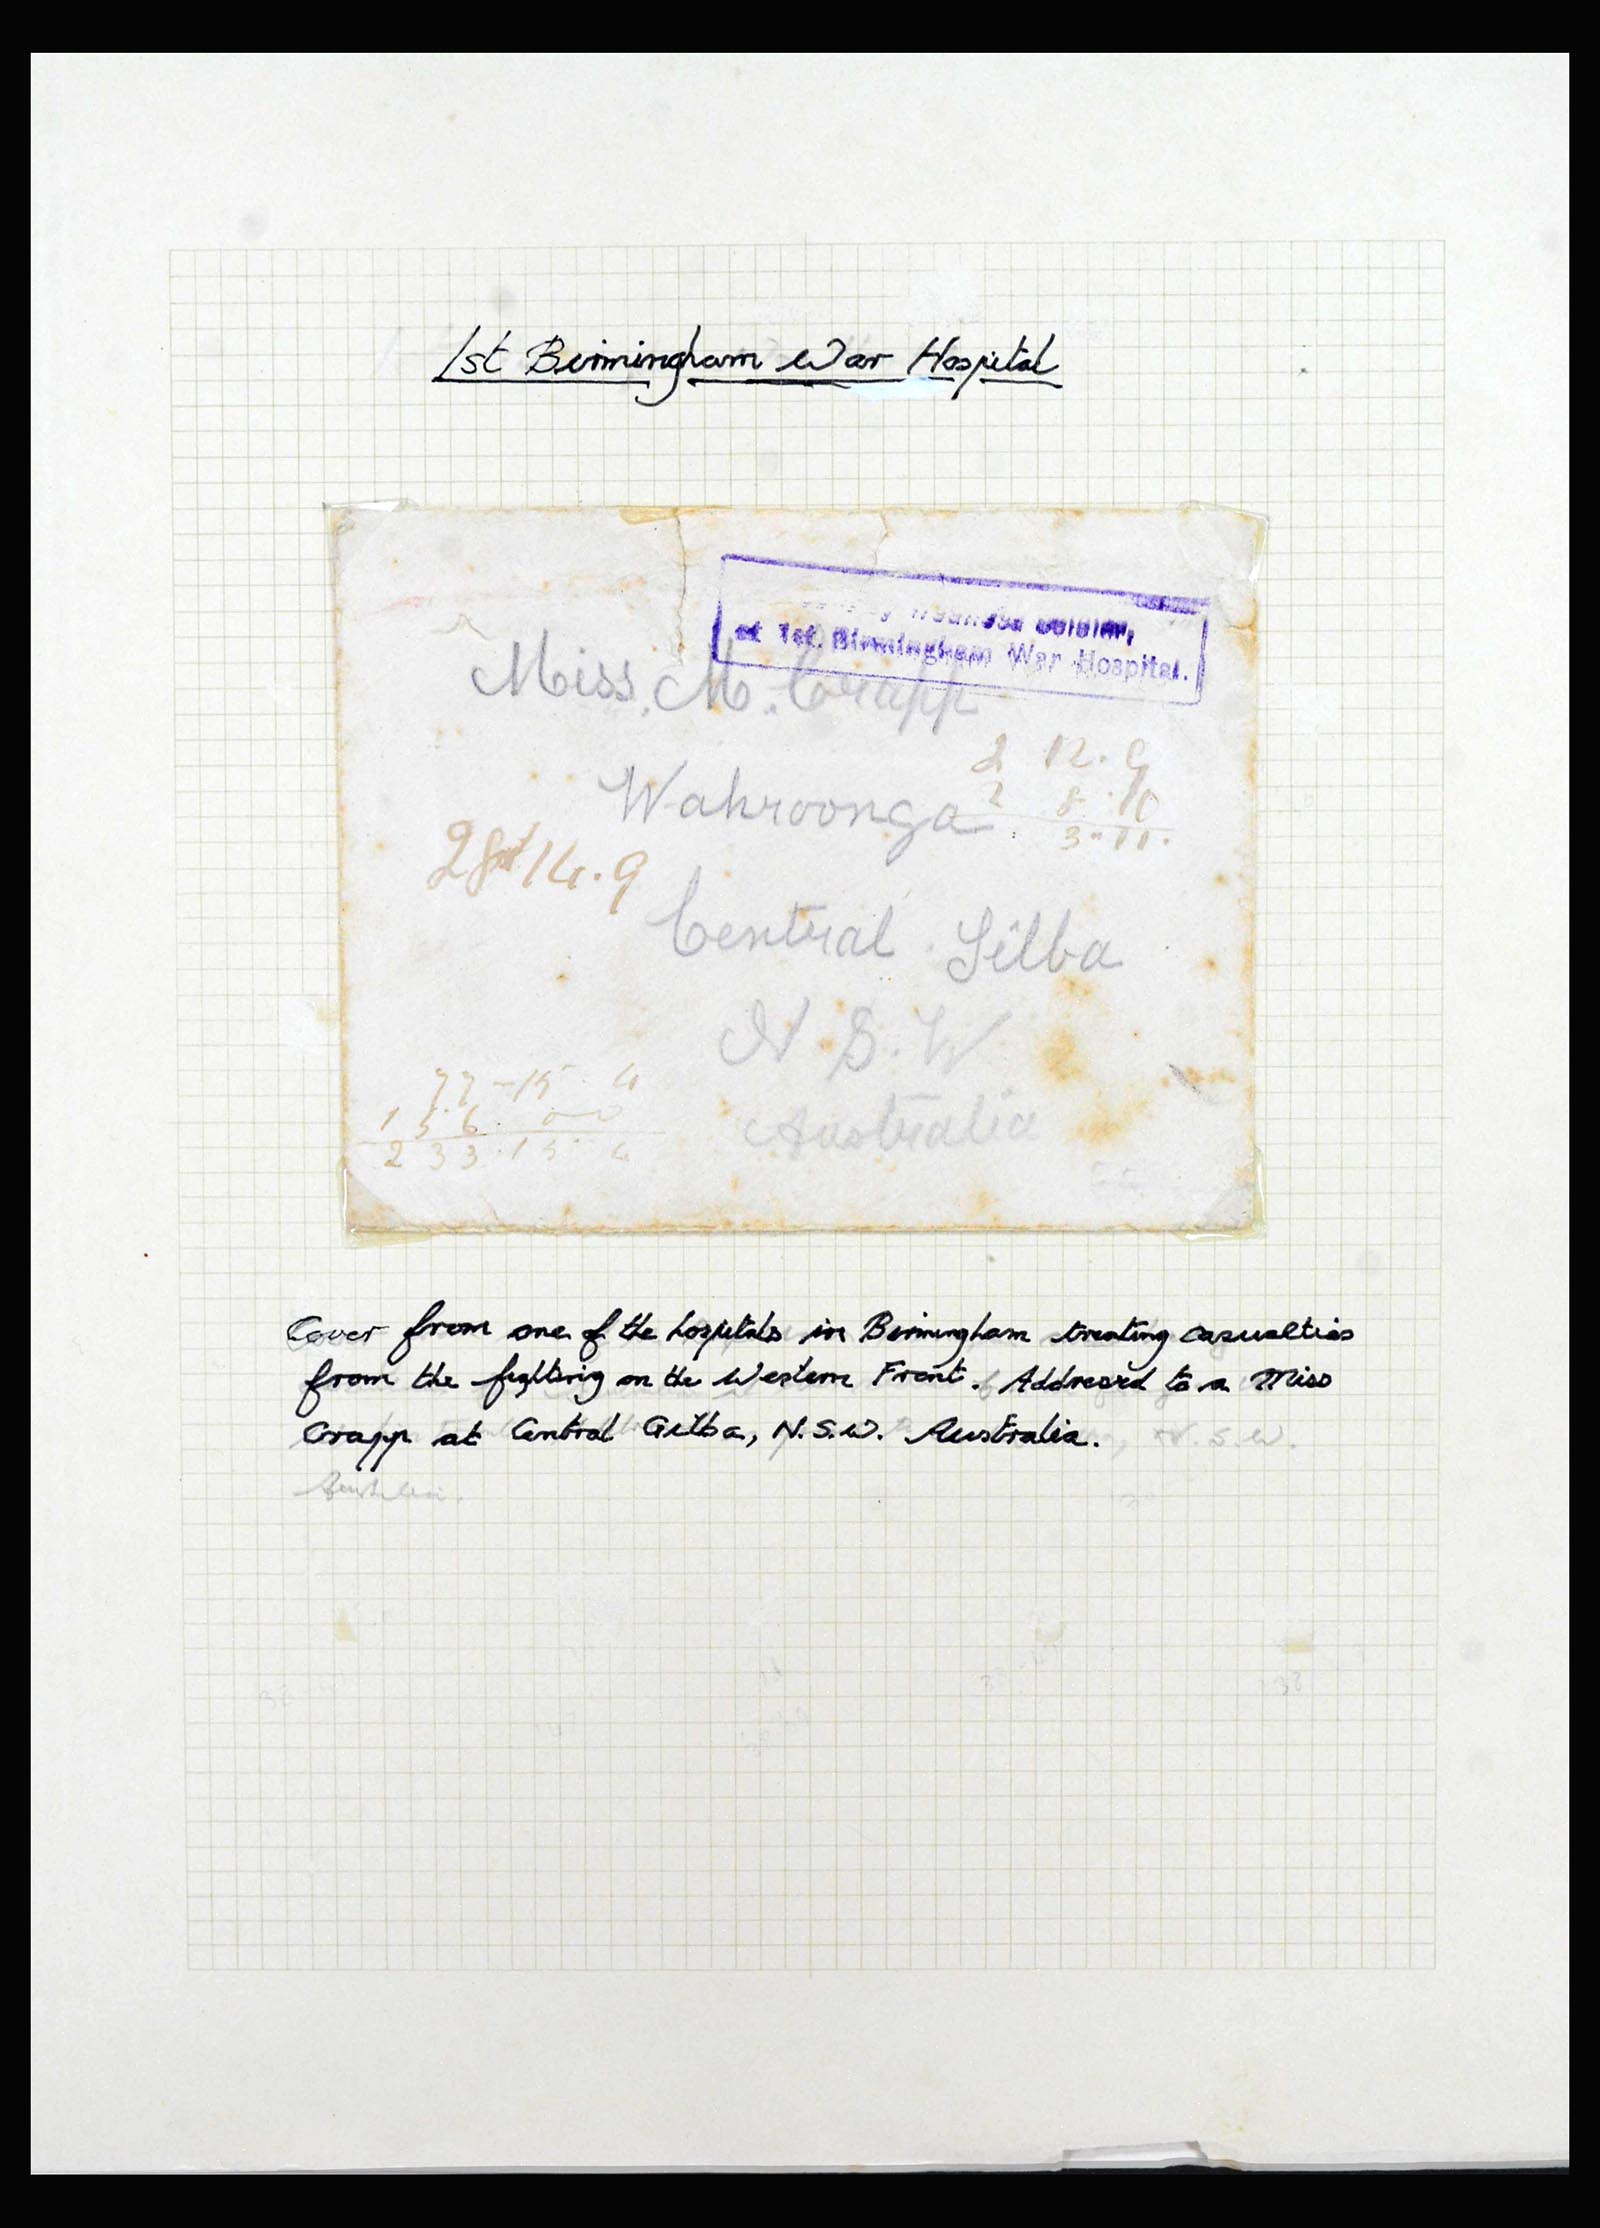 1st Birmingham War Hospital
at 1st. Birmingham War Hospital.
Miss. M. Crapp
2 12. 9
Wahroonga
2 8. 10
3 " 11.
14.9
Central Gilba
N. S. W
77-15. 4
156. 0-0
Australia
233.15. 4
Cover from one of the hospitals in Birmingham treating casualties
from the fighting on the Western Front. Addressed to a Miss
Crapp at Central Gilba, N.S.W. Australia.
N. S. W.
38